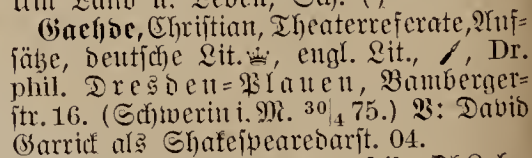 Gaehde, Christian, Theaterreferate, Auf=
sätze, deutsche Lit. ♕, engl. Lit., Dr.
phil. Dresden=Plauen, Bamberger=
str. 16. (Schwerin i. M. 30/4 75.) V: David
Garrick als Shakespearedarst. 04.